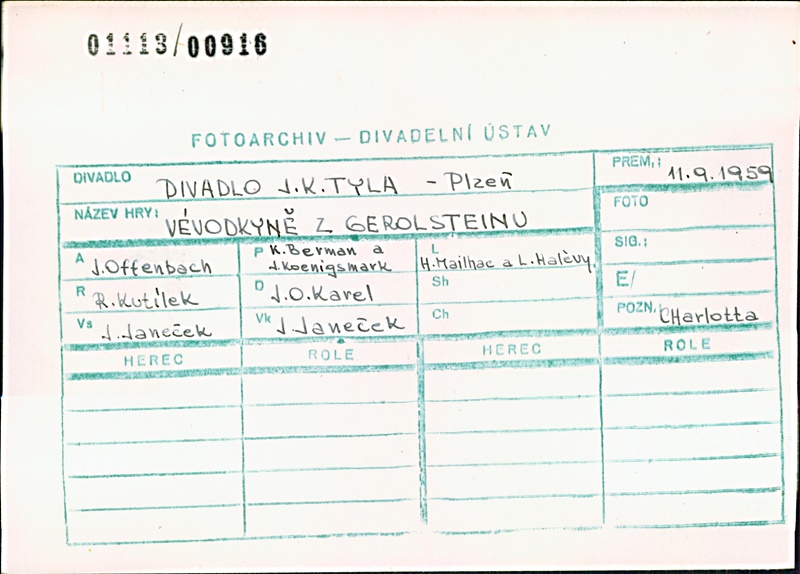 01113/00916
FOTOARCHIV — DIVADELNÍ ÚSTAV
DIVADLO DIVADLO J.K.TYLA - Plzeň
PREM.: 11.9.1959
NÁZEV HRY: VÉVODKYNĚ Z GEROLSTEINU
FOTO
SIG.:
E/
POZN. CHarlotta
A J.Offenbach
P K.Berman a
J.Koenigsmark
L H.Mailhac a L.Halèvy
R R.Kutílek
D J.O.Karel
Sh
Vs J.Janeček
Vk J.Janeček
Ch
HEREC ROLE HEREC ROLE